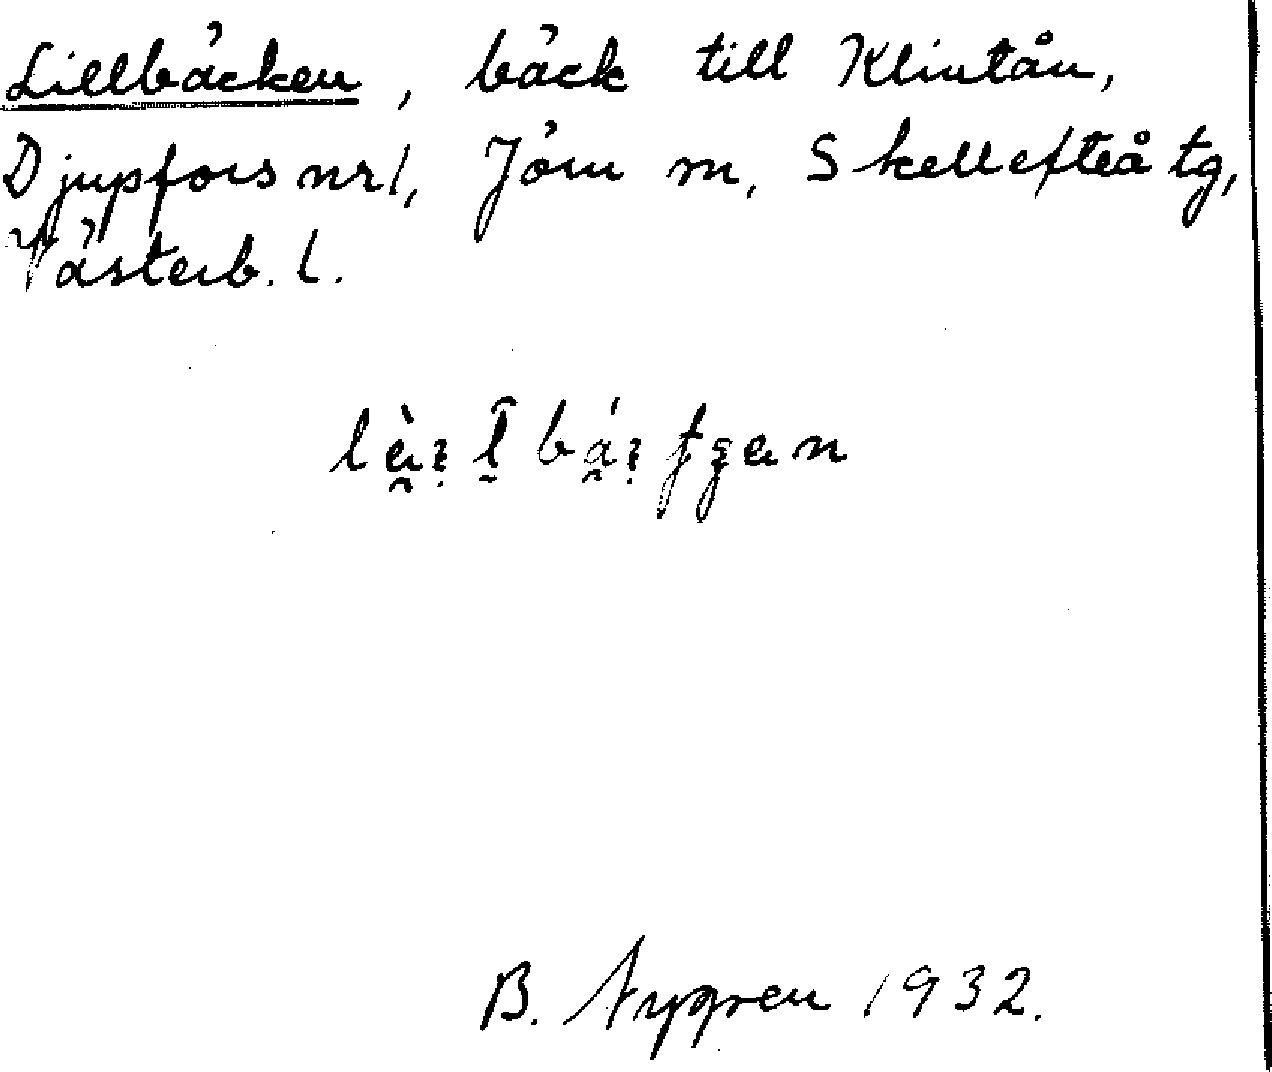 Lillbäcken, bäck till Klintån,
Djupfors nr 1, Jörn m, Skellefteå tg,
Västerb. l.
B. Nygren 1932.